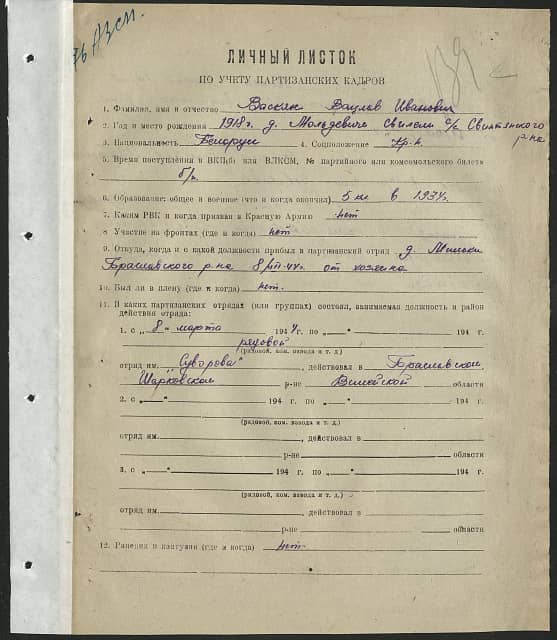 ЛИЧНЫЙ ЛИСТОК
ПО УЧЕТУ ПАРТИЗАНСКИХ КАДРОВ
1. Фамилия, имя и отчество Васкян Вацлав Иванович
2. Год и место рождения 1918 г. д. с/с
р-на
3. Национальность Белорус 4. Соцположение Кр-н.
5. Время поступления в ВКП(б) или ВЛКСМ, № партийного или комсомольского билета
б/п.
6. Образование: общее и военное (что и когда окончил) 5 кл в 1934 г.
7. Каким РВК и когда призван в Красную Армию нет
8. Участие на фронтах (где и когда) нет
9. Откуда, когда и с какой должности прибыл в партизанский отряд д.
Браславского р-на 8/III-44 г. от хозяина
10. Был ли в плену (где и когда) нет.
11. В каких партизанских отрядах (или группах) состоял, занимаемая должность и район
действия отряда:
1. с „ 8 “ марта 194 4 г. по „ “ 194 г.
рядовой
(рядовой, ком. взвода и т. д.)
отряд им. "Суворова", действовал в Браславском,
Шарковском р-не Вилейской области
2. с „ “ 194 г. по „ “ 194 г.
(рядовой, ком. взвода и т. д.)
отряд им. , действовал в
р-не области
3. с „ “ 194 г. по „ “ 194 г.
(рядовой, ком. взвода и т. д.)
отряд им. , действовал в
р-не области
12. Ранения и контузии (где и когда) нет.